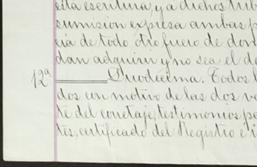 sita escritura, y a dichos trib
sumision expresa ambas p
cia de todo otro fuero de don
dan adquirir y no sea el de
12ª Duodecima. Todos l
dos con motivo de las dos v
te del corretaje, testimonios pa
tes, certificado del Registro e i